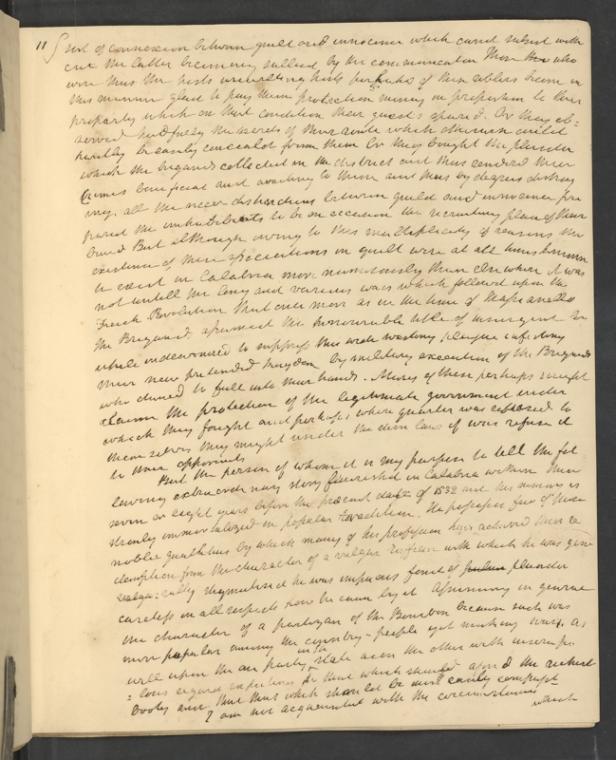 11 sort of connexion between guilt and innocence which could subsist with
out the latter becoming sullied by the communication Those
were thus the
this manner glad to pay them protection money in proportion to their
property which on that condition their guests spared. Or they ob=
served faithfully the secrets of these which otherwise could
hardly be easily concealed from them Or they bought the plunder
which the brigands collected in the district and thus rendered their
Crimes beneficial and to them and thus by degrees destroy
ing all the near distinctions between guild and innocence pre
pared the inhabitants to be on occasion the recruiting place of their
band But although owing to this multiplicity of reasons the
existence of these associations in guilt were at all times known
to exist in Calabria more numerously than elsewhere it was
not untill the long and various wars which followed upon the
French Revolution that once more as in the time of Masaniello
the Brigands assumed the honourable title of insurgents
while endeavoured to suppress this wide wasting plague infesting
their new pretended kingdom by military execution of the Brigands
who chanced to fall into their hands. Many of these perhaps might
claim the protection of the legitimate government under
which they fought and perhaps where quarter was refused to
themselves they might under the dire laws of war refuse it
to their opponents
But the person of whom it is my purpose to tell the fol
lowing extraordinary story flourished in Calabria within these
seven or eight years before the present date of 1832 and his memory is
strongly immortalized in popular tradition. He possesses few of those
nobler qualities by which many of his profession have achieved their re
demption from the character of a vulgar ruffian with which he was gen
erally he was impetuous fond of plunder
careless in all respects how he came by it Assuming in general
the character of a partizan of the Bourbon because such was
more popular among the country-people yet making wars as
well upon the one party or state as on the other with
=lous regard to that which should afford the richest
booty and that which should be most easily
I am not acquainted with the circumstances
which